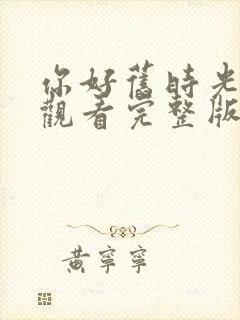 你好舊時光
觀看完整版
黃寧寧